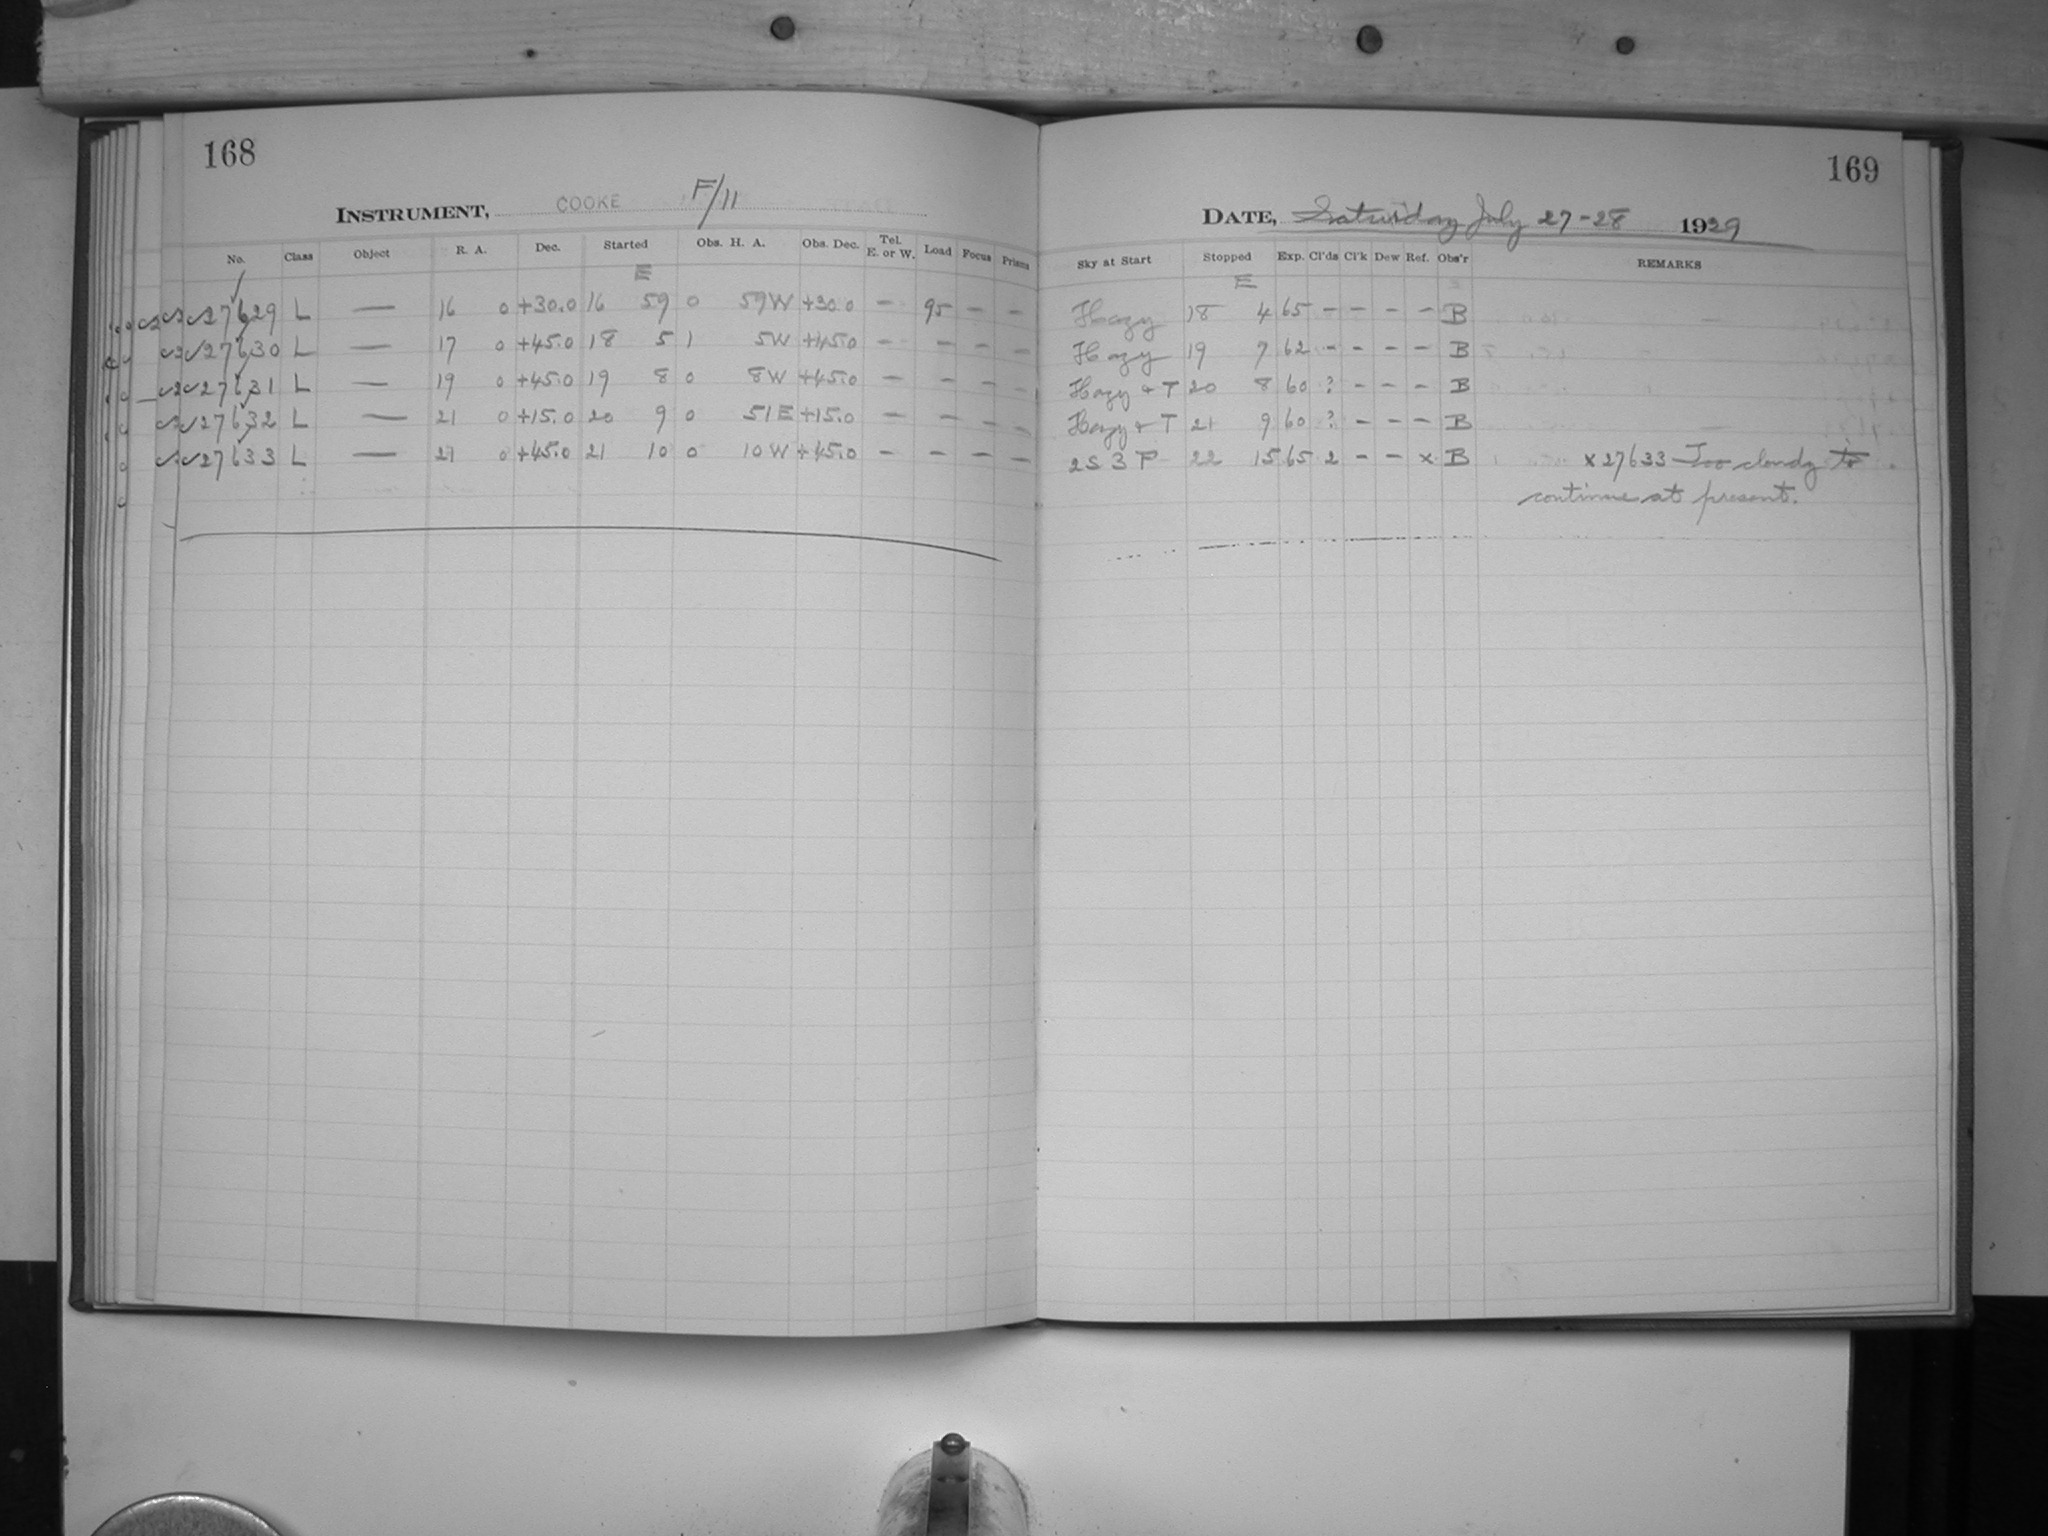 168
INSTRUMENT, COOKE F/11
No. Class Object R. A. Dec. Started Obs. H. A. Obs. Dec. Tel. E. or W. Load Focus Prisms
E
27629 L — 16 0 +30.0 16 59 0 59W +30.0 — 95 — —
27630 L — 17 0 +45.0 18 5 1 5W +45.0 — — — —
27631 L — 19 0 +45.0 19 8 0 8W +45.0 — — — —
27632 L — 21 0 +15.0 20 9 0 51E +15.0 — — — —
27633 L — 21 0 +45.0 21 10 0 10W +45.0 — — — —
169
DATE, Saturday July 27-28 1929
Sky at Start Stopped Exp. Cl'ds Cl'k Dew Ref. Obs'r REMARKS
E
Hazy 18 4 65 — — — — B
Hazy 19 7 62 — — — — B
Hazy + T 20 8 60 ? — — — B
Hazy + T 21 9 60 ? — — — B
2S 3P 22 15 65 2 — — x B x 27633 Too cloudy to
continue at present.